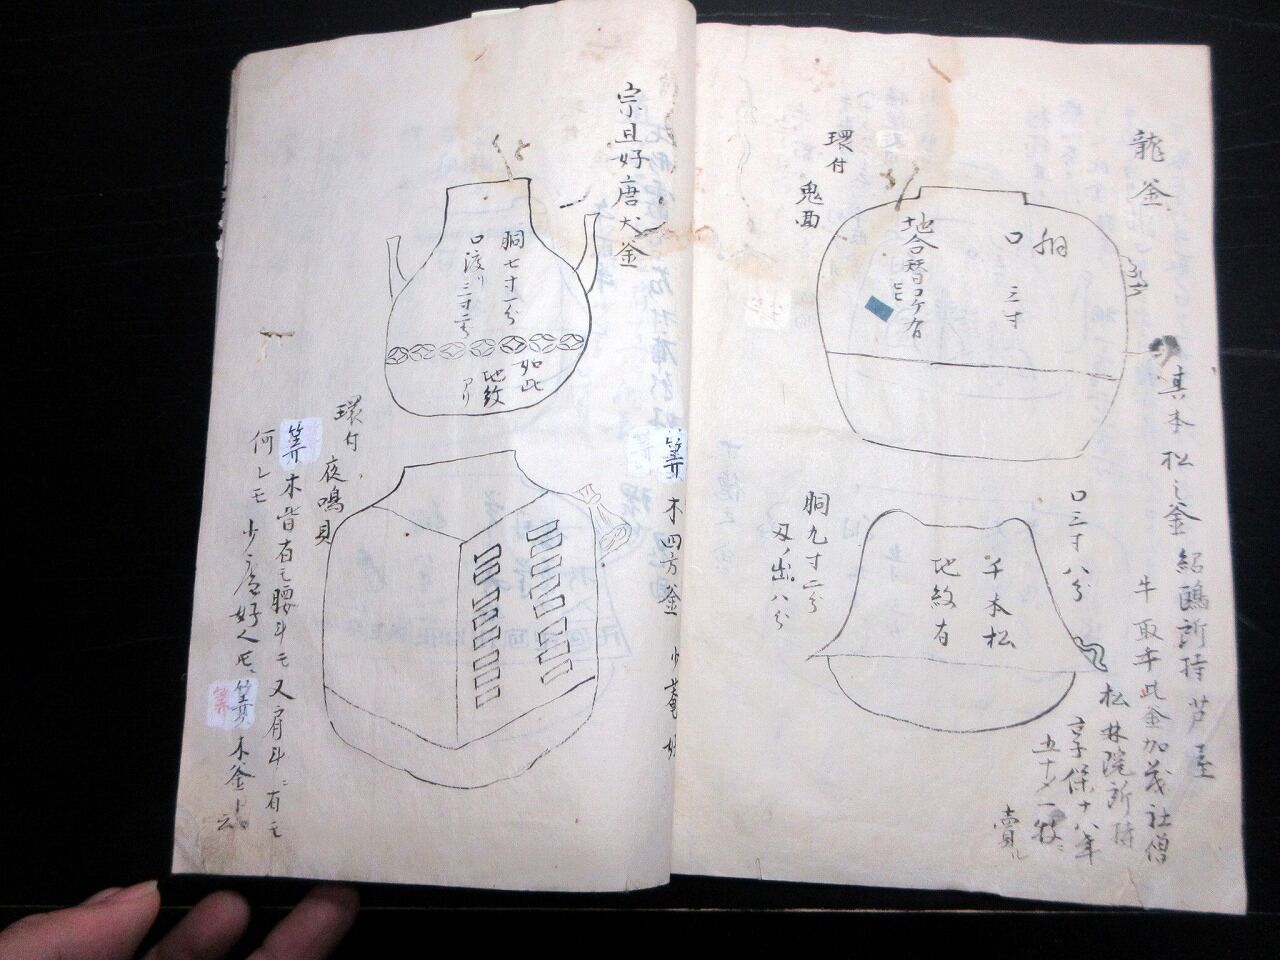 龍釜
胴
口 三寸
地合替コケ有
環付
鬼面
真本松之釜 紹鴎所持 芦屋
牛取手此釜加茂社僧
松林院所持
享保十八年
五十メ一枚ニ
賣ル
口三寸八分
千本松
地紋有
胴九寸二分
刄ノ出八分
宗旦好唐犬釜
胴七寸一分
口渡リ三寸二分
如此
地紋
アリ
算木四方釜 少菴好
環付
夜鳴貝
算木皆有モ腰斗モ又肩斗ニ有モ
何レモ少庵好ト云
算木釜ト云